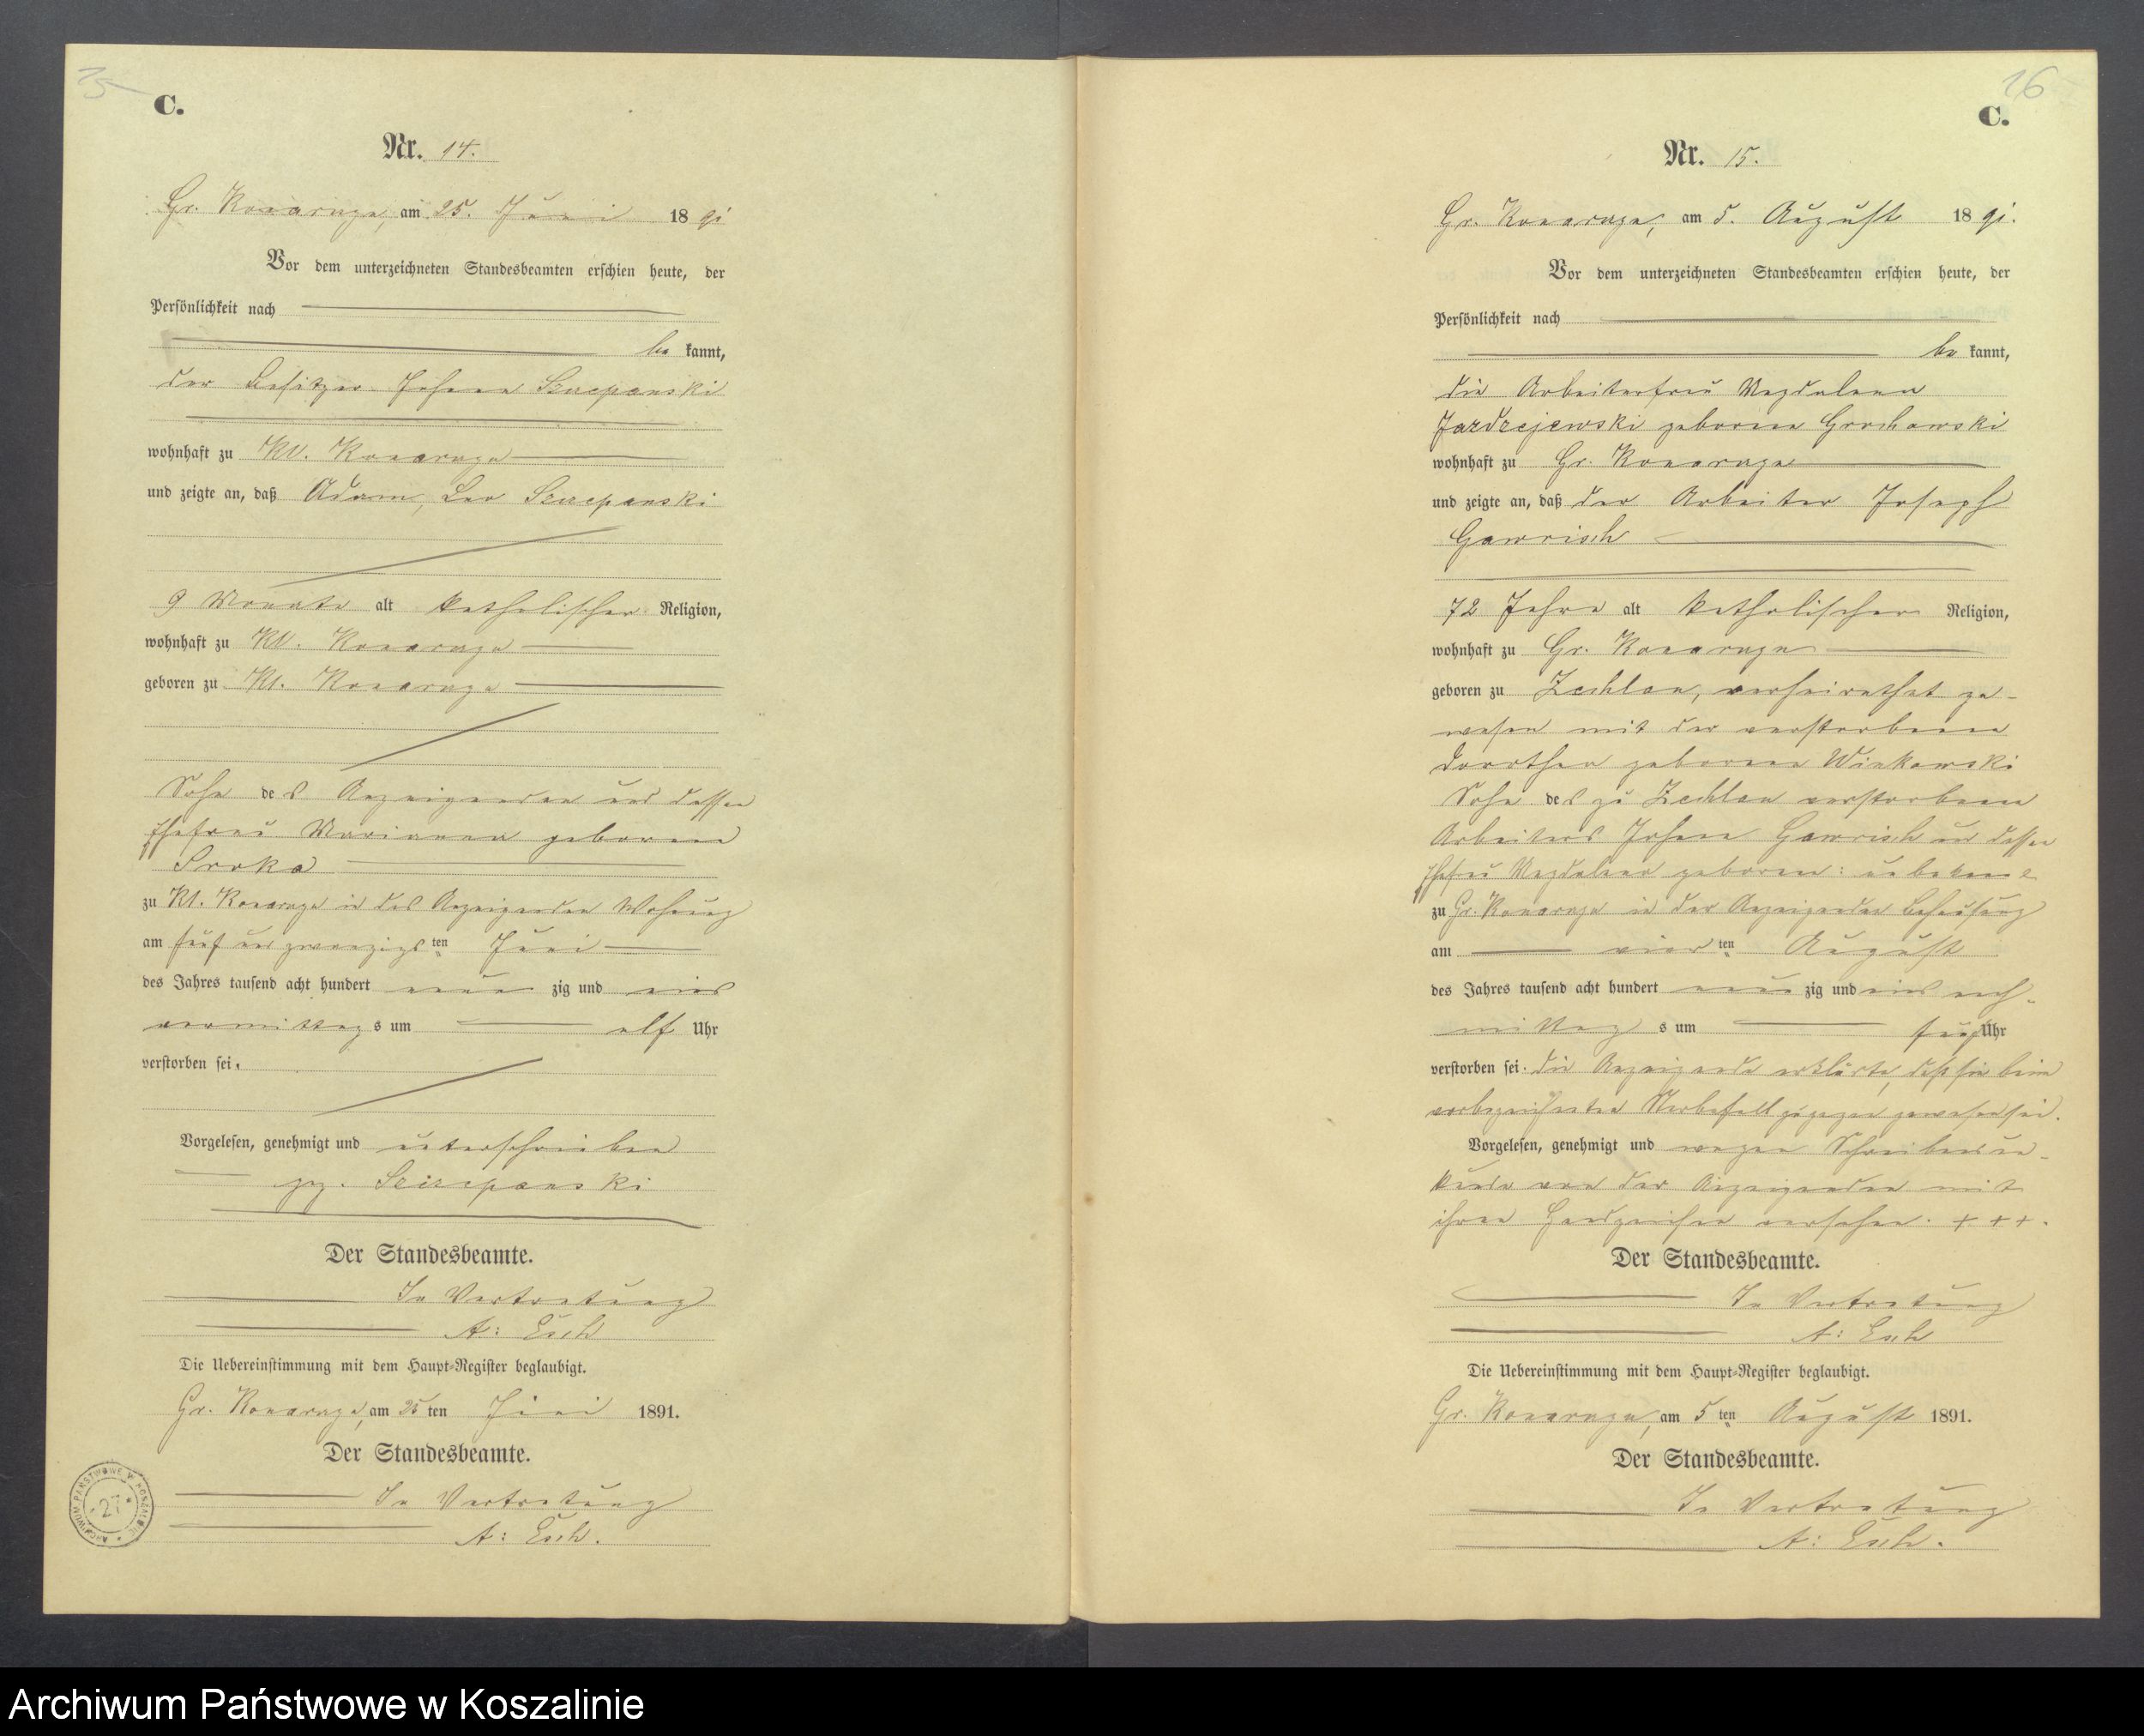 C.
Nr. 14.
Gr. Konarzyn, am 25. Juni 18 91
Vor dem unterzeichneten Standesbeamten erschien heute, der
Persönlichkeit nach
be kannt,
der Besitzer Johann Szczepanski
wohnhaft zu Kl. Konarzyn
und zeigte an, daß Adam, Leo Szczepanski
9 Monate alt katholischer Religion,
wohnhaft zu Kl. Konarzyn
geboren zu Kl. Konarzyn
Sohn des Anzeigenden und dessen
Ehefrau Marianna geborene
Sroka
zu Kl. Konarzyn in des Anzeigenden Wohnung
am fünf und zwanzigsten Juni
des Jahres tausend acht hundert neun zig und eins
vormittags um elf Uhr
verstorben sei.
Vorgelesen, genehmigt und unterschrieben
gez. Szczepanski
Der Standesbeamte.
In Vertretung
A: Esch
Die Uebereinstimmung mit dem Haupt-Register beglaubigt.
Gr. Konarzyn, am 25 ten Juni 1891.
Der Standesbeamte.
In Vertretung
A: Esch.
ARCHIWUM PAŃSTWOWE W KOSZALINIE
27
26
C.
Nr. 15.
Gr. Konarzyn, am 5. August 18 91.
Vor dem unterzeichneten Standesbeamten erschien heute, der
Persönlichkeit nach
be kannt,
die Arbeiterfrau Magdalena
Jazdzejewski geborene Grochowski
wohnhaft zu Gr. Konarzyn
und zeigte an, daß der Arbeiter Joseph
Gawrisch
72 Jahre alt katholischer Religion,
wohnhaft zu Gr. Konarzyn
geboren zu Zechlau, verheirathet ge-
wesen mit der verstorbenen
Dorothea geborene Winkowski
Sohn des zu Zechlau verstorbenen
Arbeiters Johann Gawrisch und dessen
Ehefrau Magdalena geborene: unbekannt
zu Gr. Konarzyn in der Anzeigenden Behausung
am vierten August
des Jahres tausend acht hundert neun zig und eins nach-
mittags um fünf Uhr
verstorben sei. die Anzeigende erklärte, daß sie beim
vorbezeichneten Sterbefall zugegen gewesen sei.
Vorgelesen, genehmigt und wegen Schreibensun-
kunde von der Anzeigenden mit
ihren Handzeichen versehen. + + +.
Der Standesbeamte.
In Vertretung
A: Esch
Die Uebereinstimmung mit dem Haupt-Register beglaubigt.
Gr. Konarzyn, am 5 ten August 1891.
Der Standesbeamte.
In Vertretung
A: Esch.
Archiwum Państwowe w Koszalinie